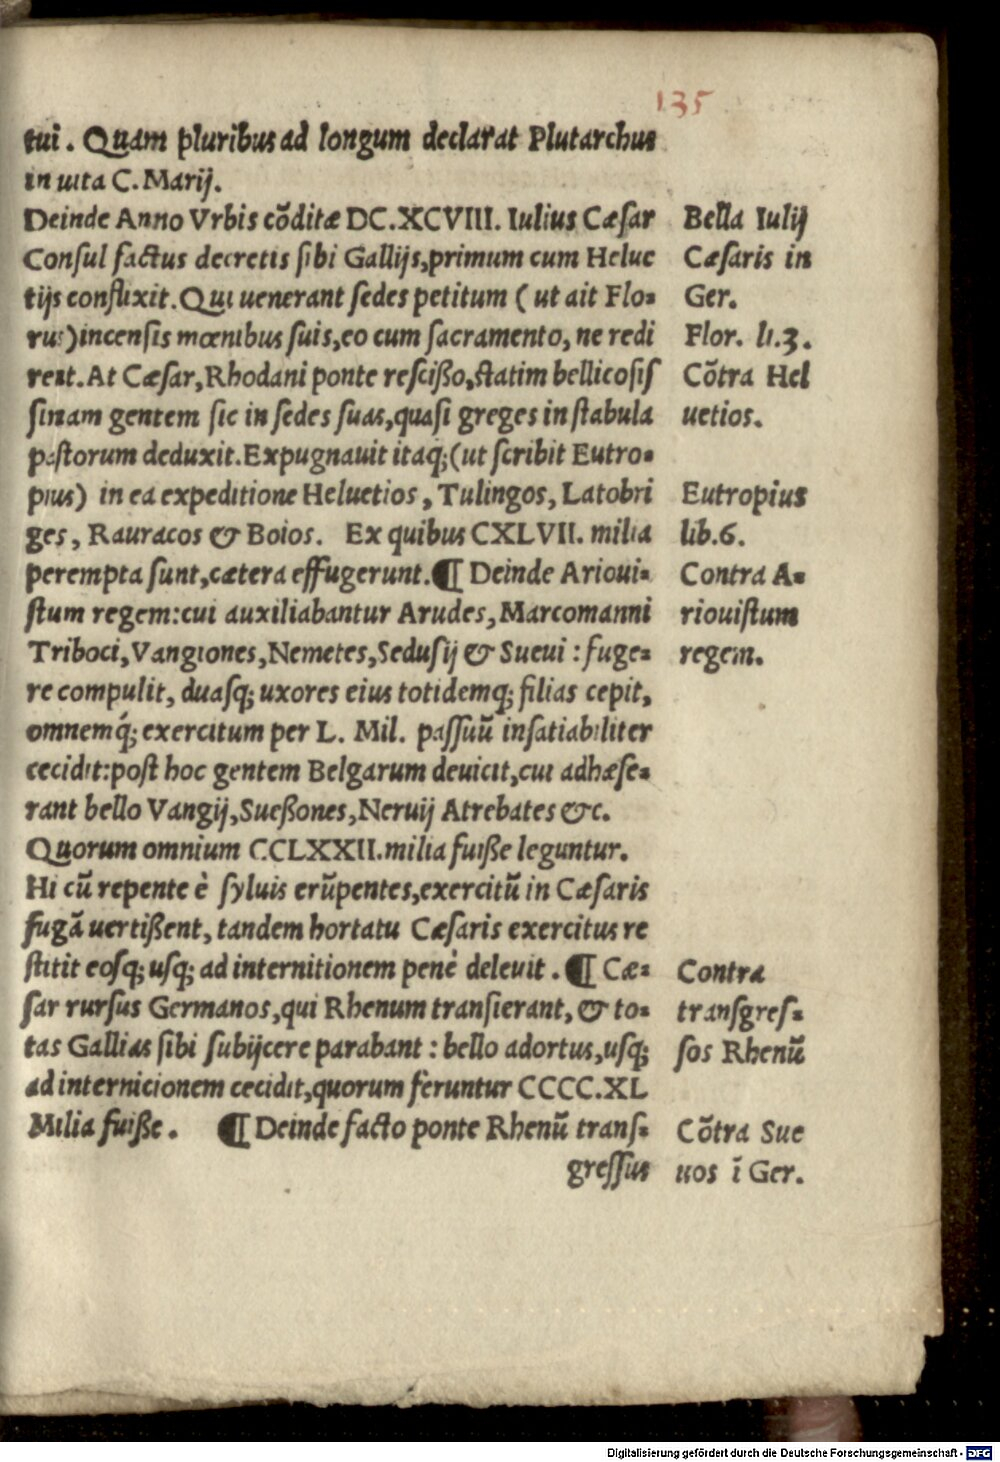 135
tui. Quam pluribus ad longum declarat Plutarchus
in uita C. Marij.
Deinde Anno Vrbis cōditæ DC.XCVIII. Iulius Cæsar
Consul factus decretis sibi Gallijs, primum cum Helue
tijs conflixit. Qui uenerant sedes petitum ( ut ait Flo-
rus) incensis mœnibus suis, eo cum sacramento, ne redi
rent. At Cæsar, Rhodani ponte rescißo, statim bellicosis
sinam gentem sic in sedes suas, quasi greges in stabula
pastorum deduxit. Expugnauit itaq; (ut scribit Eutro-
pius) in ea expeditione Heluetios, Tulingos, Latobri
ges, Rauracos & Boios. Ex quibus CXLVII. milia
perempta sunt, cætera effugerunt. ¶ Deinde Arioui-
stum regem: cui auxiliabantur Arudes, Marcomanni
Triboci, Vangiones, Nemetes, Sedusij & Sueui : fuge-
re compulit, duasq; uxores eius totidemq; filias cepit,
omnemq́; exercitum per L. Mil. passuū insatiabiliter
cecidit: post hoc gentem Belgarum deuicit, cui adhæse-
rant bello Vangij, Sueßones, Neruij Atrebates &c.
Quorum omnium CCLXXII. milia fuiße leguntur.
Hi cū repente è syluis erūpentes, exercitū in Cæsaris
fugā uertißent, tandem hortatu Cæsaris exercitus re
stitit eosq; usq; ad internitionem penè deleuit. ¶ Cæ-
sar rursus Germanos, qui Rhenum transierant, & to-
tas Gallias sibi subijcere parabant : bello adortus, usq;
ad internicionem cecidit, quorum feruntur CCCC.XL
Milia fuiße. ¶ Deinde facto ponte Rhenū trans-
gressus
Bella Iulij
Cæsaris in
Ger.
Flor. li.3.
Cōtra Hel
uetios.
Eutropius
lib.6.
Contra A-
riouistum
regem.
Contra
transgres-
sos Rhenū
Cōtra Sue
uos ī Ger.
Digitalisierung gefördert durch die Deutsche Forschungsgemeinschaft - DFG